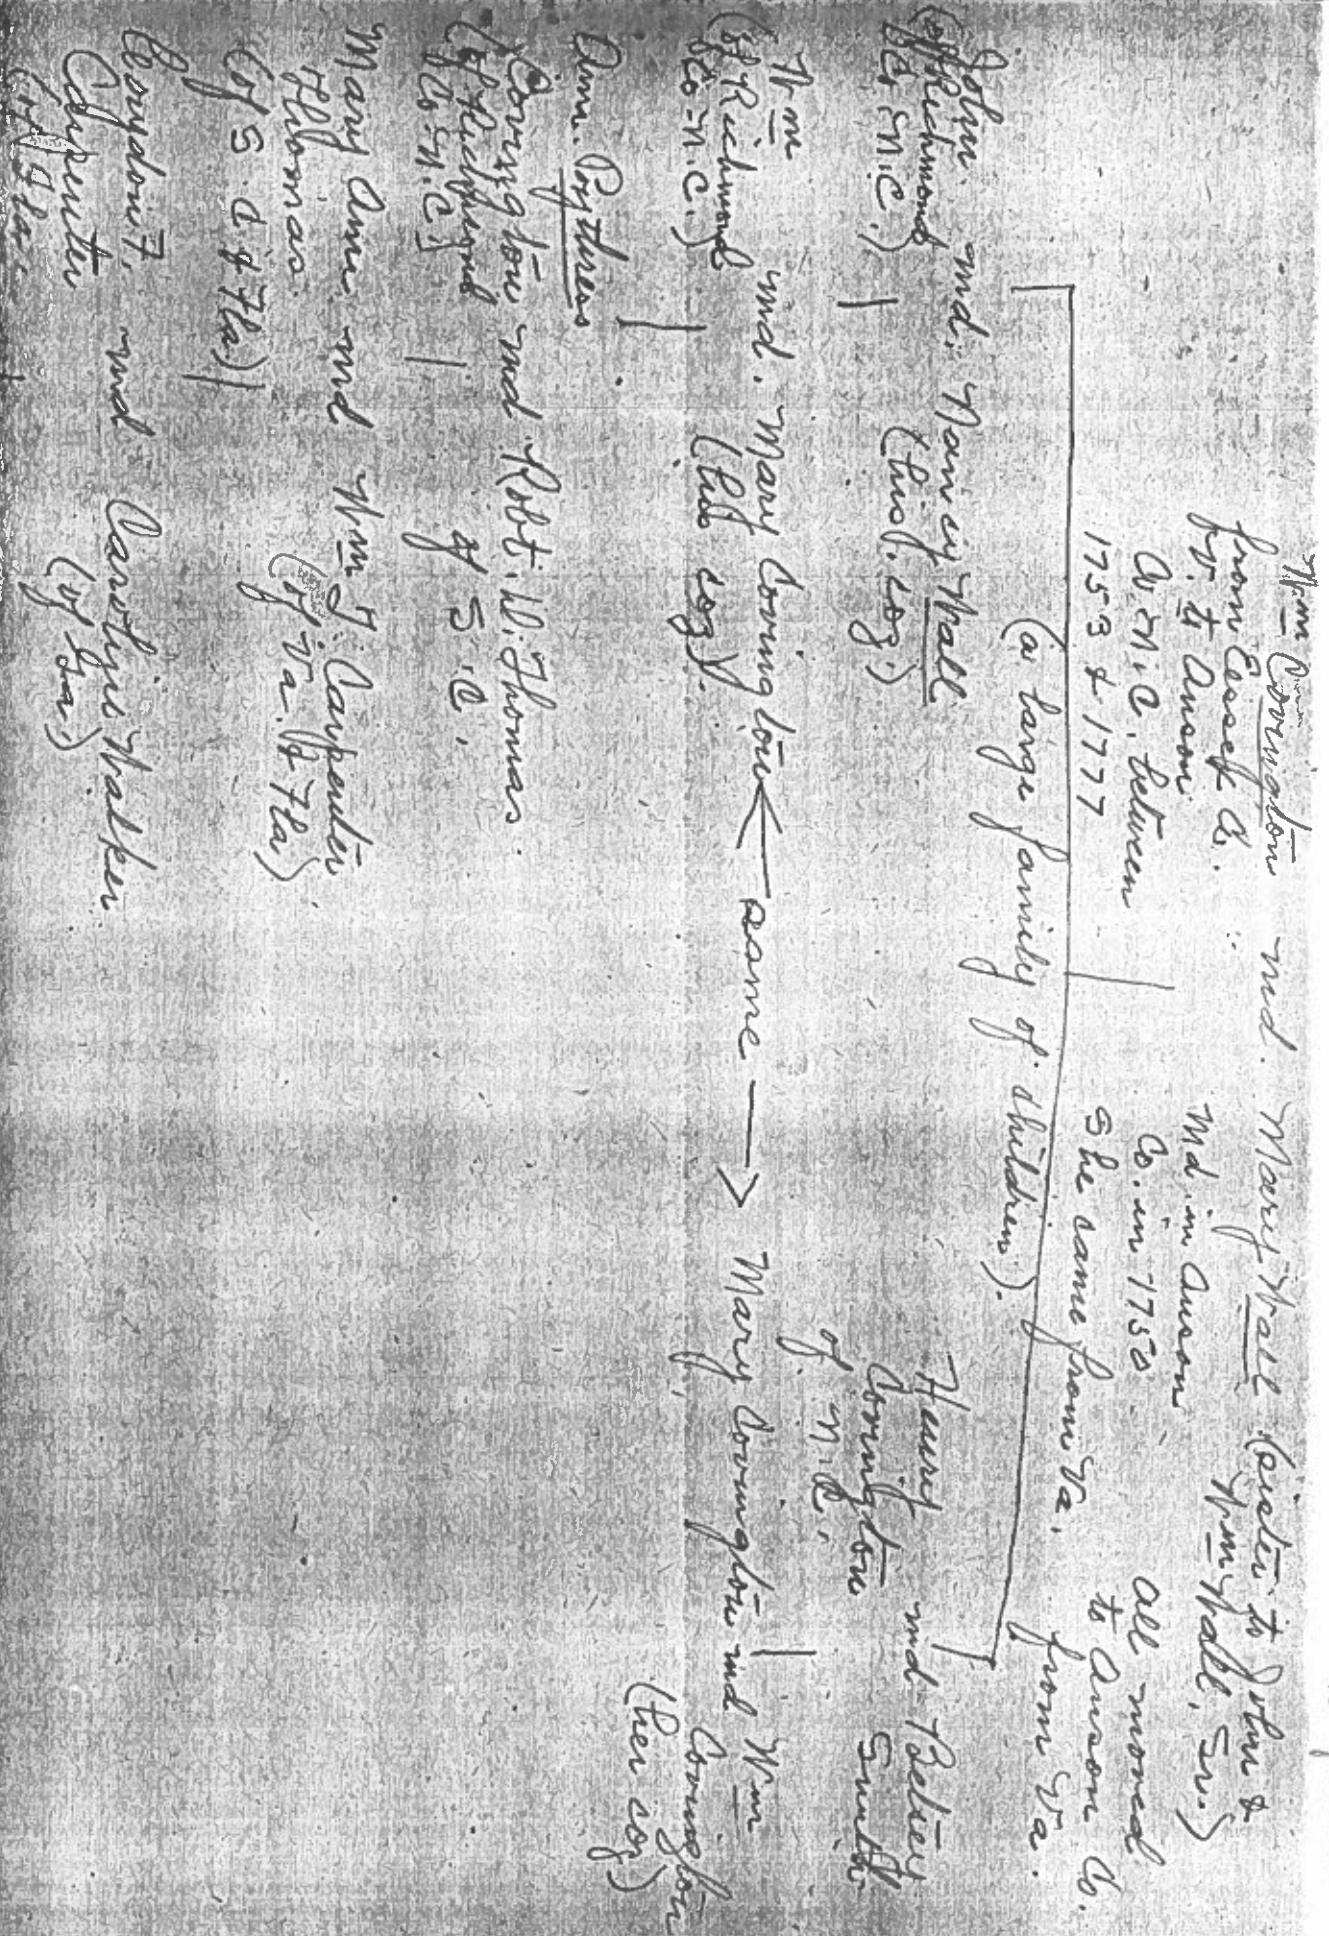 Wm Covington md. Mary Wall (sister to John &
Wm Wall, Sr.)
from Essex Co.
Va. to Anson
Co. N.C. between
1753 & 1777
Md. in Anson
Co. in 1750
She came from Va.
All moved
to Anson Co.
from Va.
(a large family of children).
John md. Nancy Wall
(of Richmond
Co. N.C.)
(his coz.)
Henry md Betsey
Covington Smith
of N.C.
Wm md. Mary Covington <— same —> Mary Covington md Wm
(of Richmond
Co. N.C.)
(his coz).
Covington
(her coz)
Ann. Prythress
Covington md Robt. W. Thomas.
(of Richmond
Co. N.C.)
of S.C.
Mary Ann md Wm J. Carpenter
Thomas
(of S.C. & Fla)
(of Va. & Fla)
Corydon F. md Carolyn Walker
Carpenter
(of Fla.
(of Ga.)